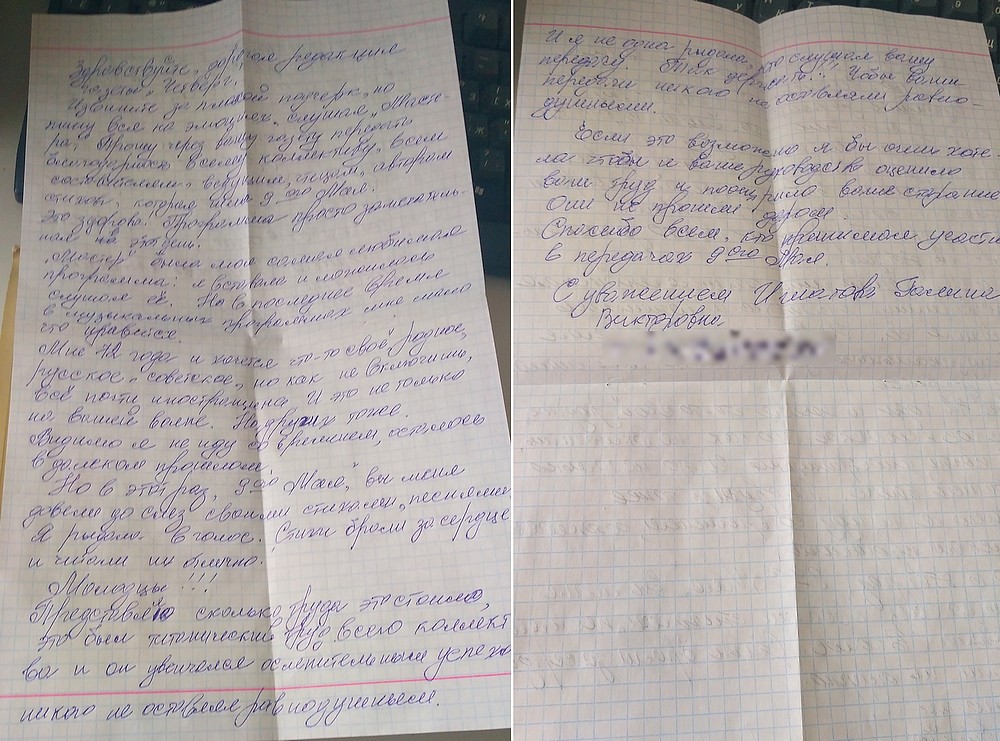 Здравствуйте, дорогая редакция
газеты „Четверг".
Извините за плохой подчерк, но
пишу вся на эмоциях, слушая „Масте-
ра". Прошу через вашу газету передать
благодарность всему коллективу, всем
составителям, ведущим, чтецам, авторам
стихов, которая шла 9ого Мая.
Это здорово! Программа просто замечатель-
ная на этот день.
„Мастер" была моя самая любимая
программа: я вставала и ложилась
слушая её. Но в последнее время
в музыкальных программах мне мало
что нравится.
Мне 72 года и хочется что-то своё, родное,
русское, советское, но как не включишь,
всё почти иностранщина. И это не только
на вашей волне. На других тоже.
Видимо я не иду со временем, осталась
в далёком прошлом.
Но в этот раз, 9ого Мая, вы меня
довели до слёз своими стихами, песнями.
Я рыдала в голос. Стихи брали за сердце
и читали их отлично.
Молодцы!!!
Представляю сколько труда это стоило,
это был титанический труд всего коллект
ва и он увенчался ослепительным успехом
никого не оставляя равнодушным.
И я не одна рыдала, кто слушал вашу
передачу. Так держать!!! Чтобы ваши
передачи никого не оставляли равно-
душными.
Если это возможно я бы очень хоте-
ла чтобы и ваше руководство оценило
ваш труд и поощрило ваше старание
Они не прошли даром.
Спасибо всем, кто принимал участи
в передачах 9ого Мая.
С уважением Игнатова Галина
Викторовна.